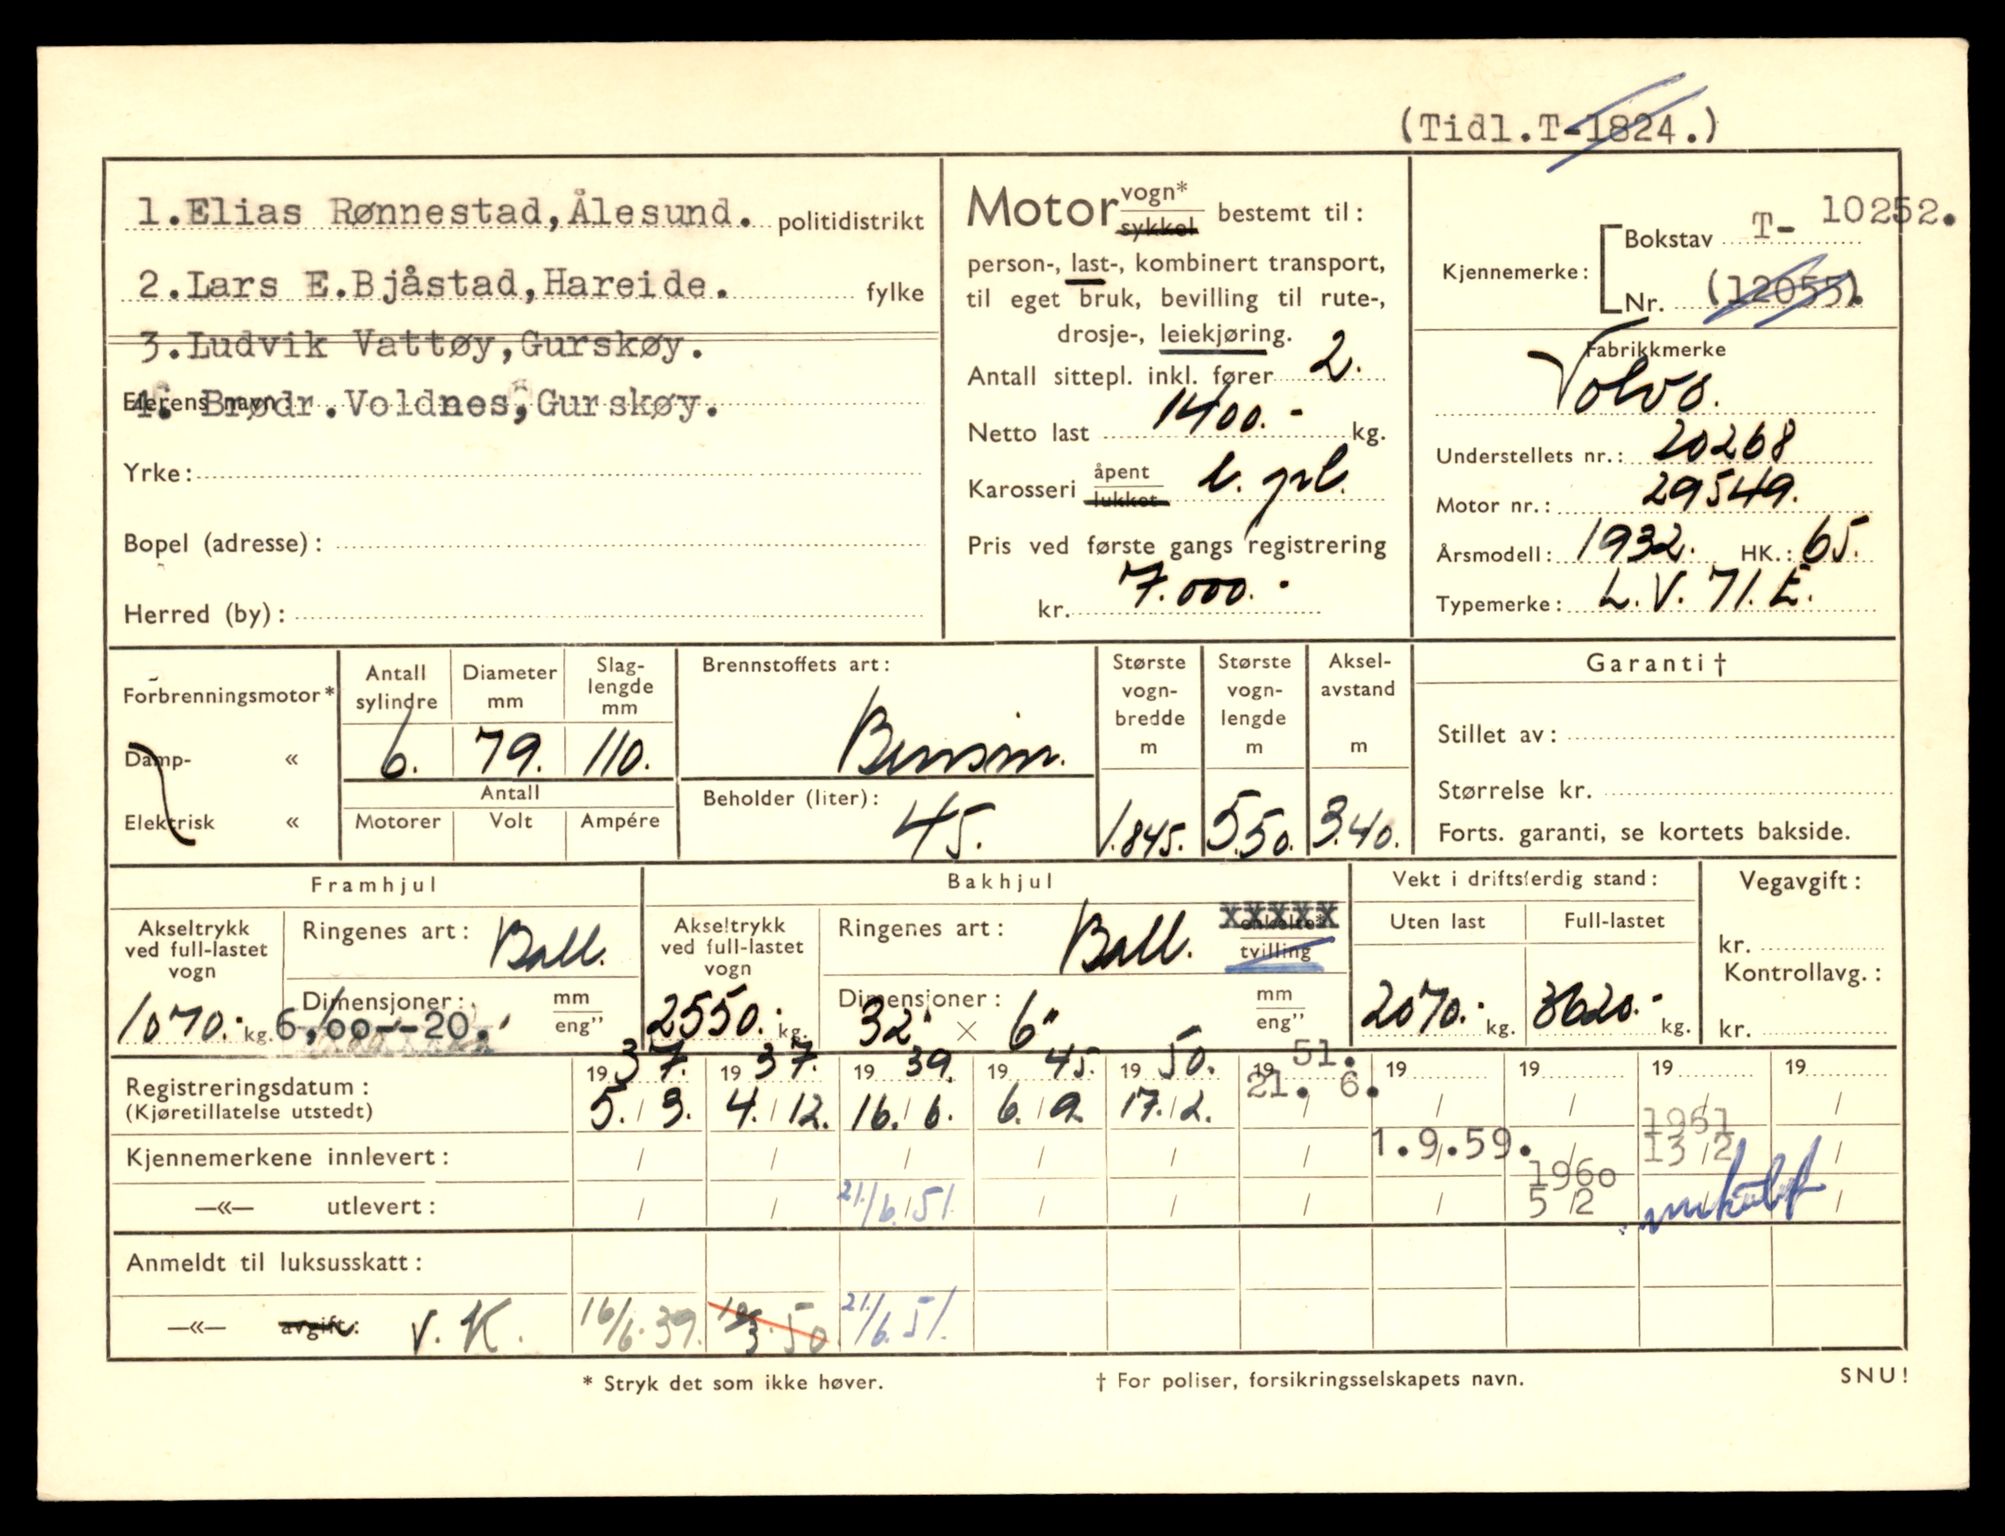 (Tidl.T-1824.)
1.Elias Rønnestad,Ålesund. politidistrikt
2.Lars E.Bjåstad,Hareide. fylke
3.Ludvik Vattøy,Gurskøy.
Eierens navn
4. Brødr.Voldnes,Gurskøy.
Yrke:
Bopel (adresse):
Herred (by):
Motor vogn* sykkel bestemt til:
person-, last-, kombinert transport,
til eget bruk, bevilling til rute-,
drosje-, leiekjøring.
Antall sittepl. inkl. fører 2.
Netto last 1400.- kg.
Karosseri åpent lukket
Pris ved første gangs registrering
kr. 7.000.-
Kjennemerke: Bokstav T- 10252.
Nr. (12055).
Fabrikkmerke
Volvo.
Understellets nr.: 20268
Motor nr.: 29549.
Årsmodell: 1932. HK.: 65.
Typemerke: L.V. 71. E.
Forbrenningsmotor*
Damp- «
Elektrisk «
Antall sylindre 6.
Diameter mm 79.
Slaglengde mm 110.
Antall
Motorer Volt Ampére
Brennstoffets art:
Bensin.
Beholder (liter): 45.
Største vognbredde m 1.845.
Største vognlengde m 5.50.
Akselavstand m 3.40.
Garanti †
Stillet av:
Størrelse kr.
Forts. garanti, se kortets bakside.
Framhjul
Akseltrykk ved full-lastet vogn 1070.- kg.
Ringenes art: Ball.
Dimensjoner: mm eng”
6.00--20.
Bakhjul
Akseltrykk ved full-lastet vogn 2550.- kg.
Ringenes art: Ball. xxxxx enkelte* tvilling
Dimensjoner: 32" × 6" mm eng”
Vekt i driftsferdig stand:
Uten last Full-lastet
2070.- kg. 3620.- kg.
Vegavgift:
kr.
Kontrollavg.:
kr.
Registreringsdatum: 1937. 1937. 1939. 1945. 1950. 1951. 19 19 19 19
(Kjøretillatelse utstedt) 5./3. 4./12. 16./6. 6./9. 17./2. 21. 6.
Kjennemerkene innlevert: 1.9.59. 1961 13/2
—«— utlevert: 21./6. 51. 1960 5/2
Anmeldt til luksusskatt:
—«— avgift: V. K. 16/6.39. 10/3.50 21./6.51.
* Stryk det som ikke høver.
† For poliser, forsikringsselskapets navn.
SNU!